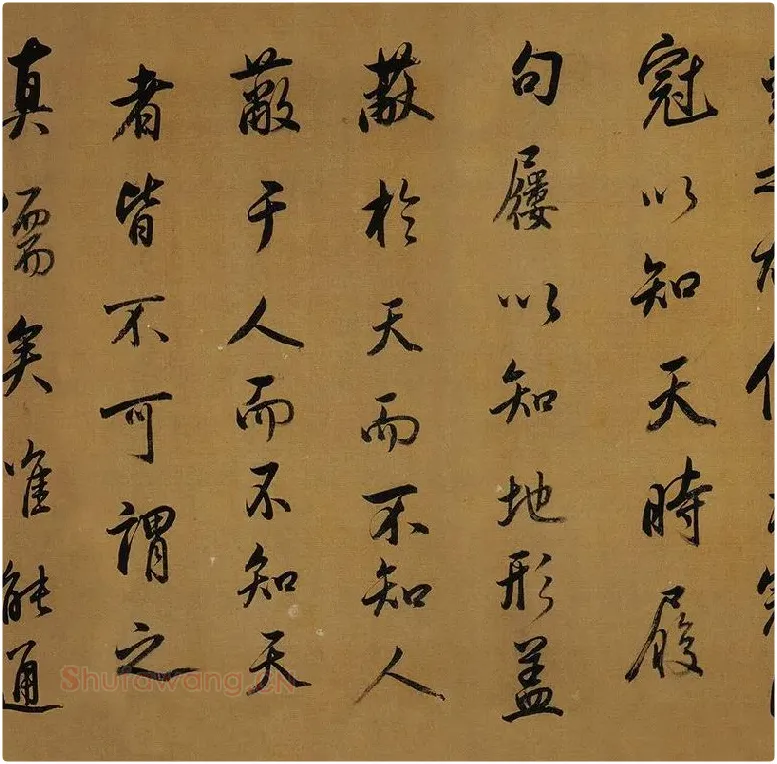 冠以知天時履
句屨以知地形蓋
蔽於天而不知人
蔽于人而不知天
者皆不可謂之
真儒矣唯能通
Shufawang.CN